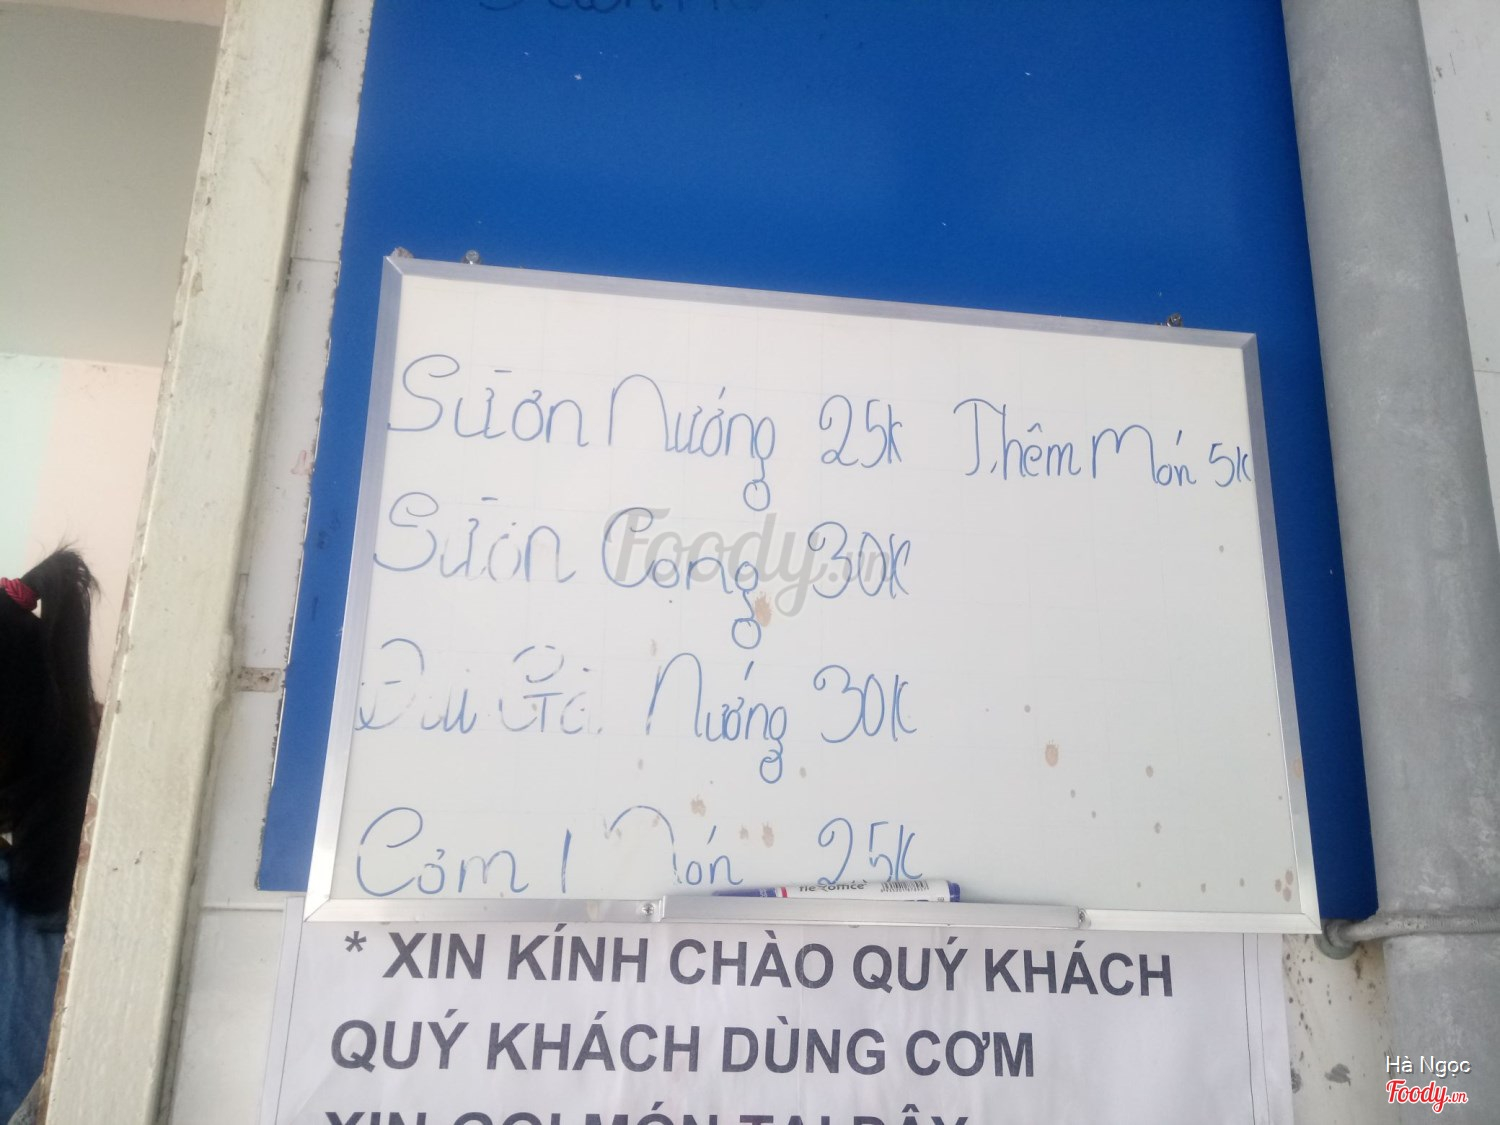 Sườn Nướng 25K Thêm Món 5K
Sườn Cọng 30K
Đùi Gà Nướng 30K
Cơm 1 Món 25K
the comce
* XIN KÍNH CHÀO QUÝ KHÁCH
QUÝ KHÁCH DÙNG CƠM
XIN GỌI MÓN TẠI ĐÂY
Foody.vn
Hà Ngọc
Foody.vn